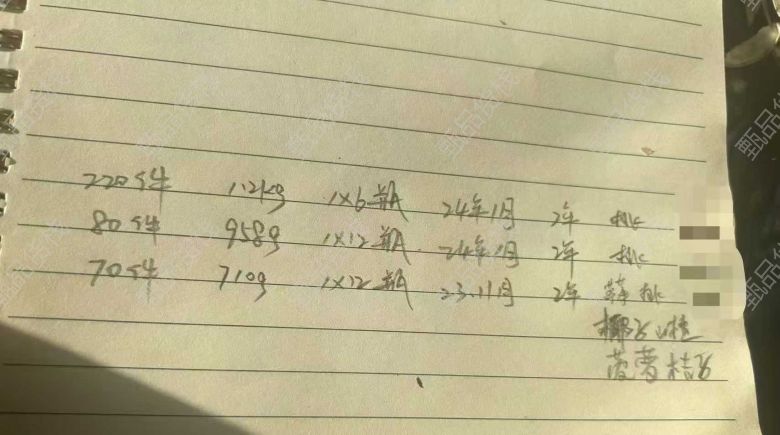 220件 1.2kg 1×6瓶 24年1月 2年 桃
80件 958g 1×12瓶 24年1月 2年 桃
70件 710g 1×12瓶 23.11月 2年 草 桃
椰子
菠萝桔子
甄品货栈